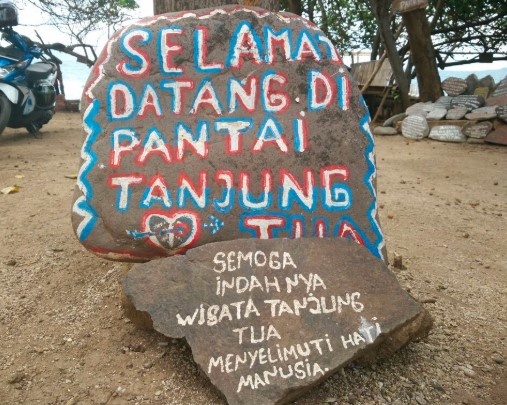 SELAMAT
DATANG.DI
PANTAI
TANJUNG
TUA
SEMOGA
INDAH NYA
WISATA TANJUNG
TUA
MENYELIMUTI HATI
MANUSIA.